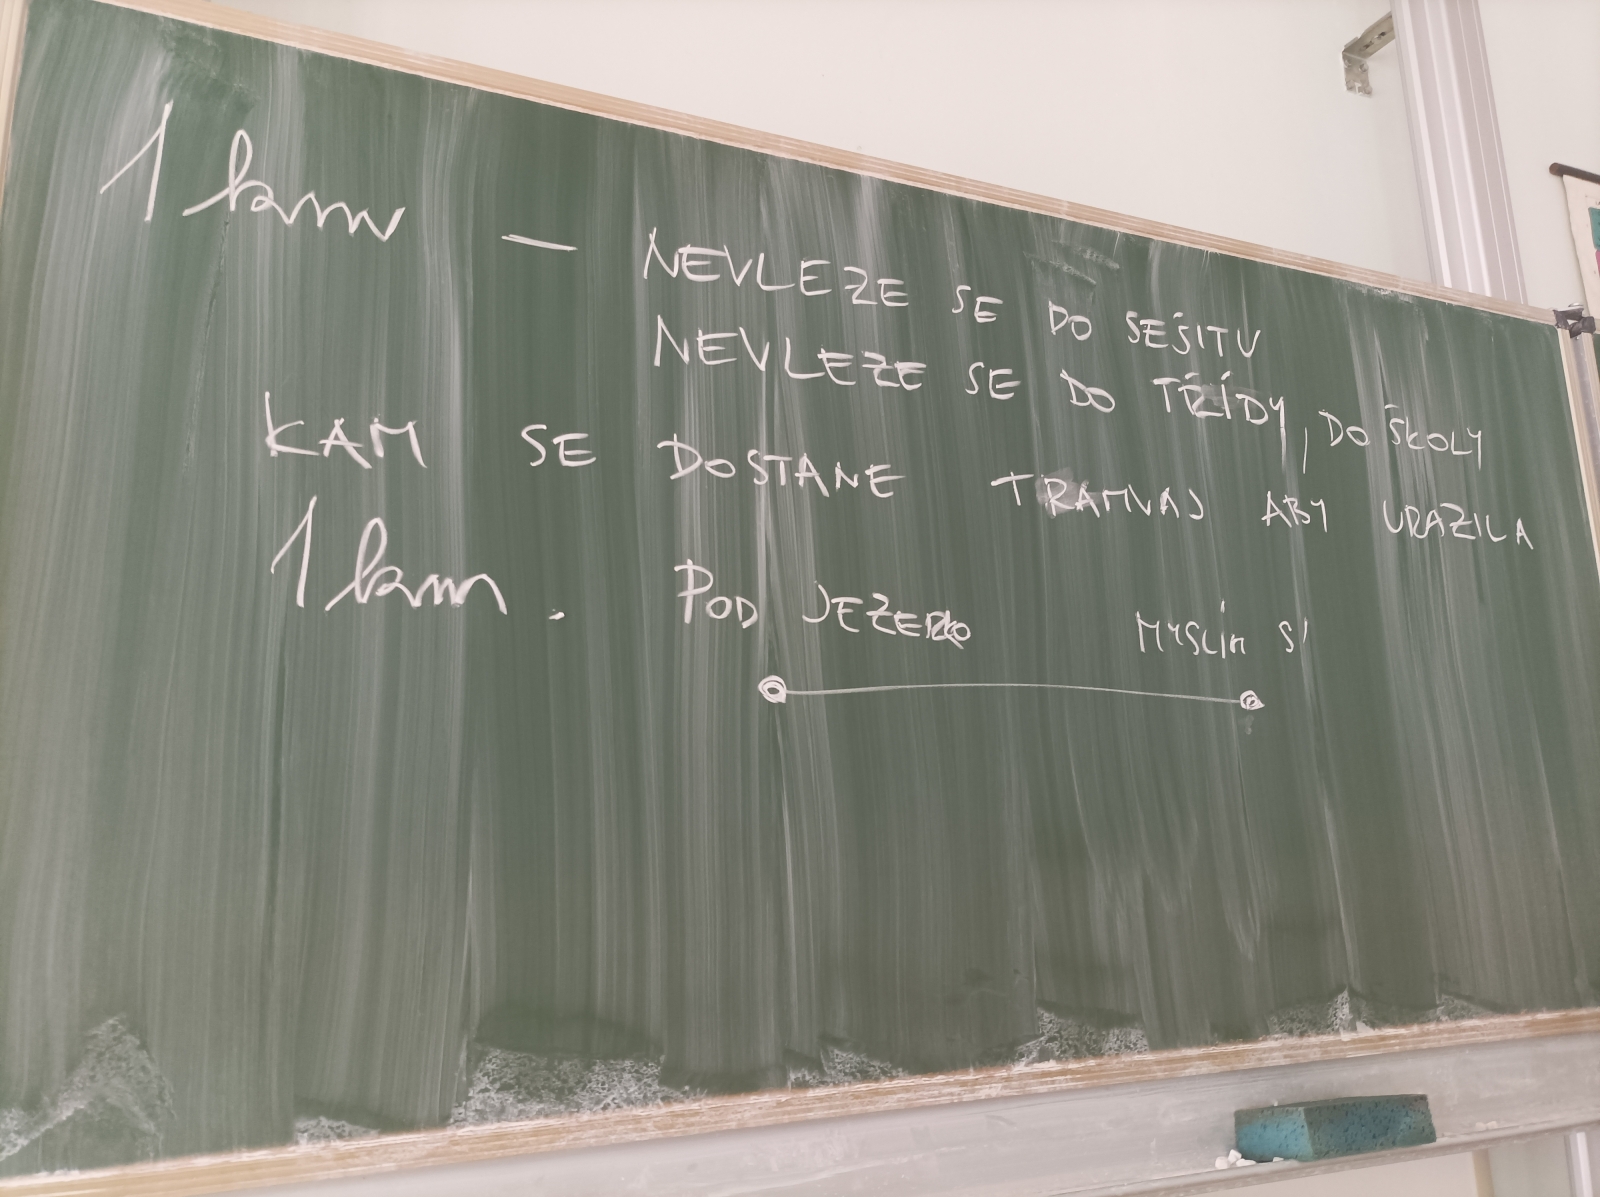 1 km — NEVLEZE SE DO SEŠITU
NEVLEZE SE DO TŘÍDY, DO ŠKOLY
KAM SE DOSTANE TRAMVAJ ABY URAZILA
1 km. POD JEZERKO MYSLÍM SI